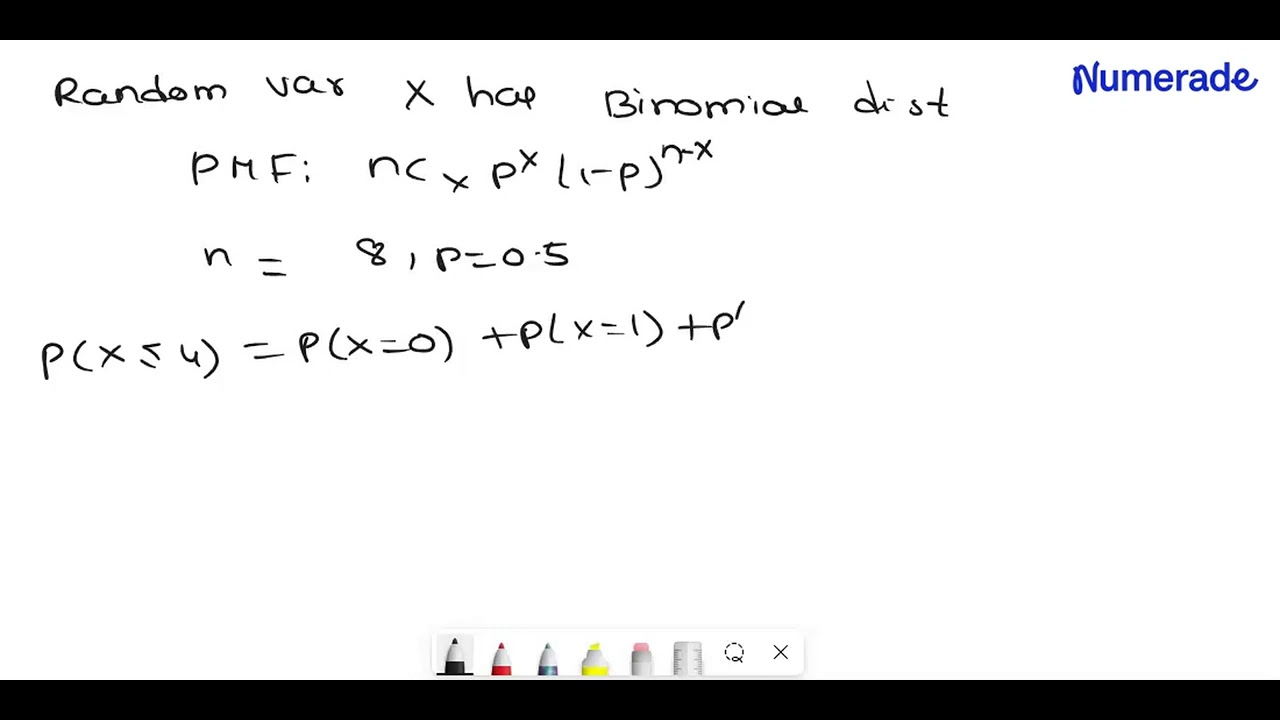 Random var X has Binomial dist
Numerade
PMF: nCx p^x (1-p)^n-x
n = 8, p=0.5
P(X ≤ 4) = P(X=0) +P(X=1) +P(